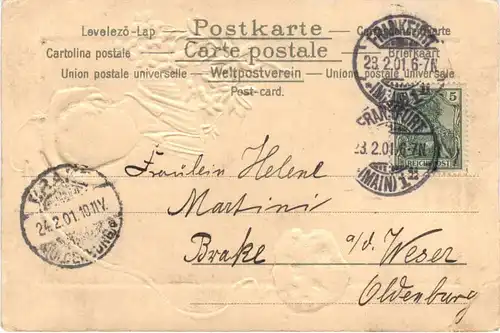 Levelező-Lap Postkarte
Cartolina postale Carte postale Briefkaart
Union postale universelle Weltpostverein Union postale universelle
Post-card.
FRANKFURT
23.2.01.6-7N.
(MAIN) 1
5
REICHSPOST
FRANKFURT
23.2.01.6-7N.
(MAIN) 1
Fräulein Helene
Martini
Brake a/d. Weser
Oldenburg
BRAKE
24.2.01.10-11V.